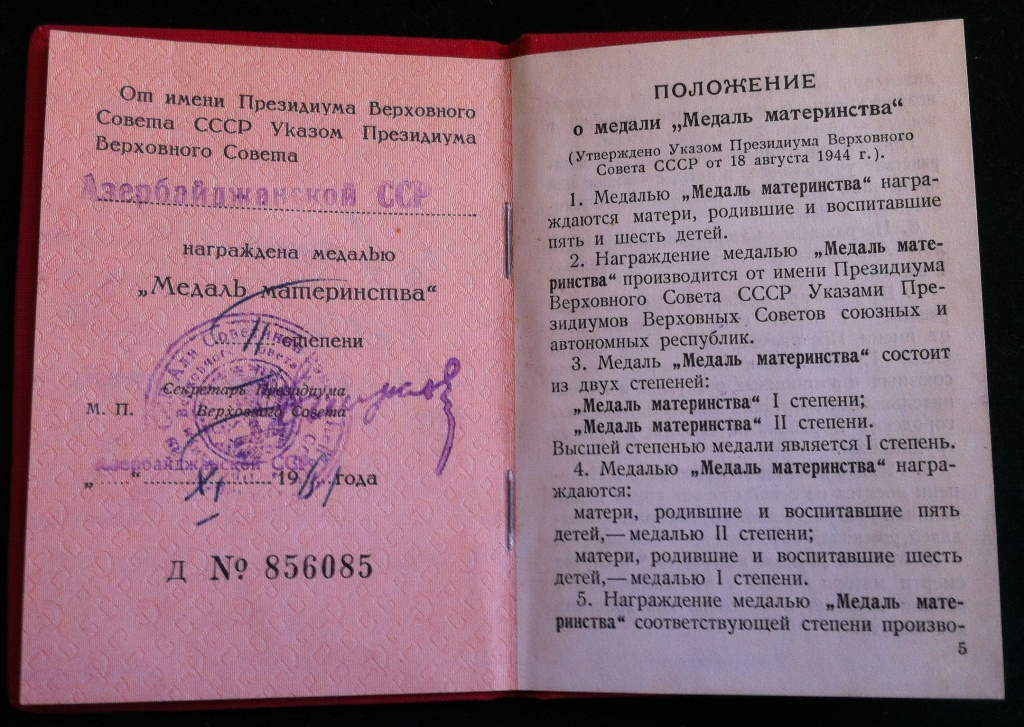 От имени Президиума Верховного
Совета СССР Указом Президиума
Верховного Совета
Азербайджанской ССР
награждена медалью
„Медаль материнства“
II степени
Секретарь Президиума
М. П. Верховного Совета
Азербайджанской ССР
„......“ XI 1961 года
Д № 856085
ПОЛОЖЕНИЕ
о медали „Медаль материнства“
(Утверждено Указом Президиума Верховного
Совета СССР от 18 августа 1944 г.).
1. Медалью „Медаль материнства“ награ-
ждаются матери, родившие и воспитавшие
пять и шесть детей.
2. Награждение медалью „Медаль мате-
ринства“ производится от имени Президиума
Верховного Совета СССР Указами Пре-
зидиумов Верховных Советов союзных и
автономных республик.
3. Медаль „Медаль материнства“ состоит
из двух степеней:
„Медаль материнства“ I степени;
„Медаль материнства“ II степени.
Высшей степенью медали является I степень.
4. Медалью „Медаль материнства“ награ-
ждаются:
матери, родившие и воспитавшие пять
детей,— медалью II степени;
матери, родившие и воспитавшие шесть
детей,— медалью I степени.
5. Награждение медалью „Медаль мате-
ринства“ соответствующей степени произво-
5